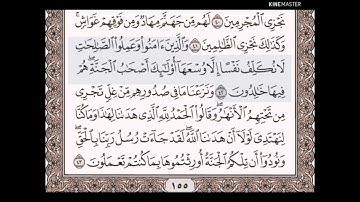 KINEMASTER
نَجْزِى ٱلْمُجْرِمِينَ ٤٠ لَهُم مِّن جَهَنَّمَ مِهَادٌ وَمِن فَوْقِهِمْ غَوَاشٍ ۚ
وَكَذَٰلِكَ نَجْزِى ٱلظَّٰلِمِينَ ٤١ وَٱلَّذِينَ ءَامَنُوا۟ وَعَمِلُوا۟ ٱلصَّٰلِحَٰتِ
لَا نُكَلِّفُ نَفْسًا إِلَّا وُسْعَهَآ أُو۟لَٰٓئِكَ أَصْحَٰبُ ٱلْجَنَّةِ ۖ هُمْ
فِيهَا خَٰلِدُونَ ٤٢ وَنَزَعْنَا مَا فِى صُدُورِهِم مِّنْ غِلٍّ تَجْرِى
مِن تَحْتِهِمُ ٱلْأَنْهَٰرُ ۖ وَقَالُوا۟ ٱلْحَمْدُ لِلَّهِ ٱلَّذِى هَدَىٰنَا لِهَٰذَا وَمَا كُنَّا
لِنَهْتَدِىَ لَوْلَآ أَنْ هَدَىٰنَا ٱللَّهُ ۖ لَقَدْ جَآءَتْ رُسُلُ رَبِّنَا بِٱلْحَقِّ ۖ
وَنُودُوٓا۟ أَن تِلْكُمُ ٱلْجَنَّةُ أُورِثْتُمُوهَا بِمَا كُنتُمْ تَعْمَلُونَ ٤٣
١٥٥